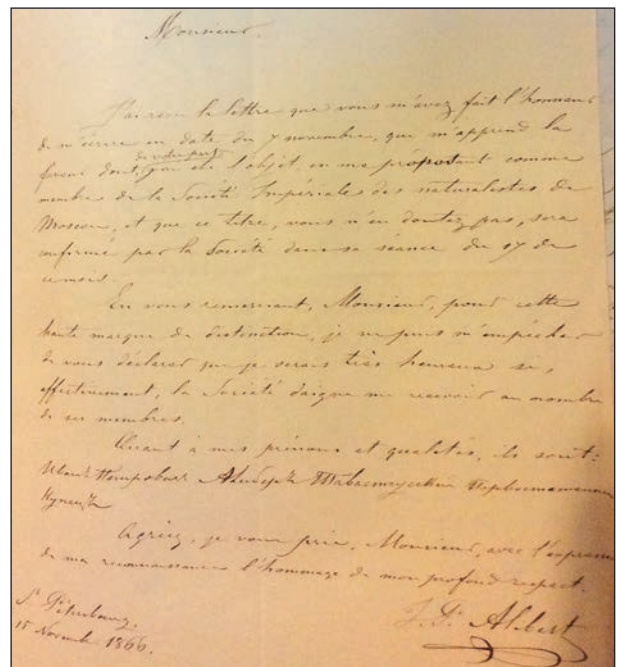 Monsieur.
J'ai reçu la lettre que vous m'avez fait l'honneur
de m'écrire en date du 7 novembre, qui m'apprend la
de votre part
faveur dont j'ai été l'objet, en me proposant comme
membre de la Société Impériales des naturalistes de
Moscou, et que ce titre, vous n'en doutez pas, sera
confirmé par la Société dans sa séance du 17 de
ce mois.
En vous remerciant, Monsieur, pour cette
haute marque de distinction, je ne puis m'empêcher
de vous déclarer que je serais très heureux si,
effectivement, la Société daigne me recevoir au nombre
de ses membres.
Quant à mes prénoms et qualités, ils sont:
Иванъ Петровичъ Алиберъ Тавастгусскiй Первостатейный
Купецъ
Agréez, je vous prie, Monsieur, avec l'expression
de ma reconnaissance l'hommage de mon profond respect.
St Pétersbourg.
15 Novembre 1866.
J. P. Alibert